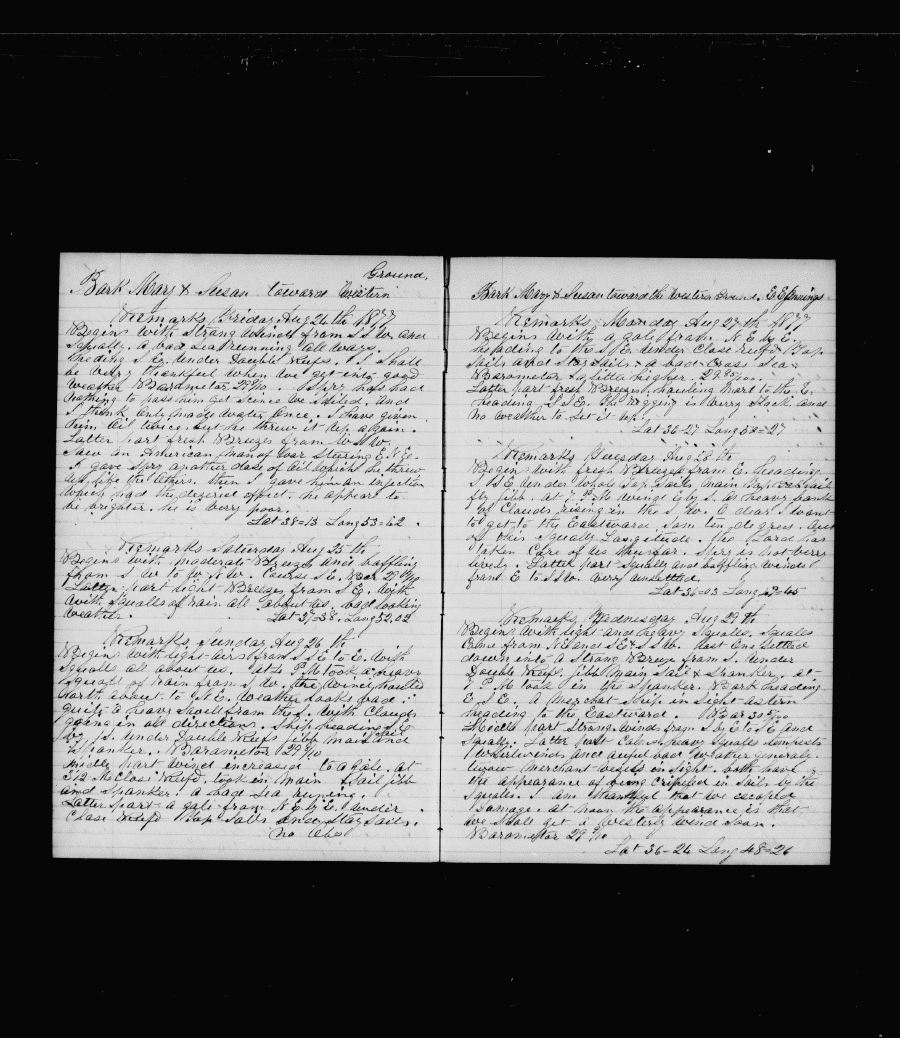 Ground,
Bark Mary & Susan toward Western
Remarks Friday Aug 24 th 1877
Begins with Strong Winds from S S W and
Squally. a bad Sea running all ways.
Heading S E. under Double Reefs. I shall
be verry thankful when we get into good
weather Barometer 29
nothing to pass him yet Scince we Sailed. and
I think only made water once. I have given
him Oil twice. but he threw it up again.
Latter part fresh Breezes from W S W.
Saw an American Man of War Steering E N E.
I gave Spry another dose of Oil which he threw
up like the others. then I gave him an injection
which had the desired effect. he appears to
be brighter. he is verry poor.
Lat 38=13 Long 53=62.
Remarks Saturday Aug 25 th
Begins with moderate Breezes and baffling
from S W to W N W. Course S E. Bar 29
Latter part light Breezes from S E. with
with Squalls of rain all about us. bad looking
weather. Lat 37=38. Long 52,02
Remarks Sunday Aug 26 th
Begins with light airs from S S E to E. with
Squalls all about us. at 4 P M took a heavy
Squall of rain from S W. the wind hauled
north about to N E. Weather looks bad
quite a heavy Swell from the S. with Clouds
going in all directions. Ship heading S E
by S. under Double Reefs jibb main Sail and
Spanker. Barometer 29
middle part wind increased to a Gale. at
Close Reefd. took in main Sail jibb
and Spanker. a bad Sea runing.
Latter part a gale from N E by E. under
Close Reefd Top Sails and Stay Sails.
no Obs
Bark Mary & Susan toward the Western Ground. E E Jennings
Remarks Monday Aug 27 th 1877
Begins with a gale from N E by E.
heading to the S E. under Close reefd Top
Sails and Stay Sails. a bad Cross Sea
Barometer a little higher. 29
Latter part fresh Breezes, hauling more to the E.
heading S S E. the Rigging is verry Slack and
no weather to Set it up.
Lat 36-27 Long 50=27
Remarks Tuesday Aug 28 th
Begins with fresh Breezes from E. heading
S S E under whole Top Sails main
fly jibb. at 7 P M wind E by S. a heavy bank
of Clouds rising in the S W. O dear I want
to get to the Eastward. Som ten degrees. out
of this Squally Longitude. the Lord has
taken Care of us thus far. Spry is not verry
lively. Latter part Squally and baffling winds
from E to S S W. verry unsettled.
Lat 36-03 Long 49=45
Remarks Wednesday Aug 29 th
Begins with light and heavy Squalls. Squalls
Came from N E and S E & S S W. last One Settled
down into a Strong Breeze from S. under
Double Reefs. jibb Main Sail & Spanker. at
P M took in the Spanker. Bark heading
E S E. A Merchat Ship in Sight astern
heading to the Eastward. Bar 30
Middle part Strong winds from S by E to S E and
Squally. Latter part Calms, heavy Squalls tempests
Whirlwinds and awful bad Weather generaly.
two Merchant vessels in Sight. both have
the appearance of being Cripeled in Sails by the
Squalls. I am thankful that we escaped
Damage. at noon the appearance is that
we Shall get a Westerly wind Soon.
Barometer 29
Lat 36-24 Long 48=26